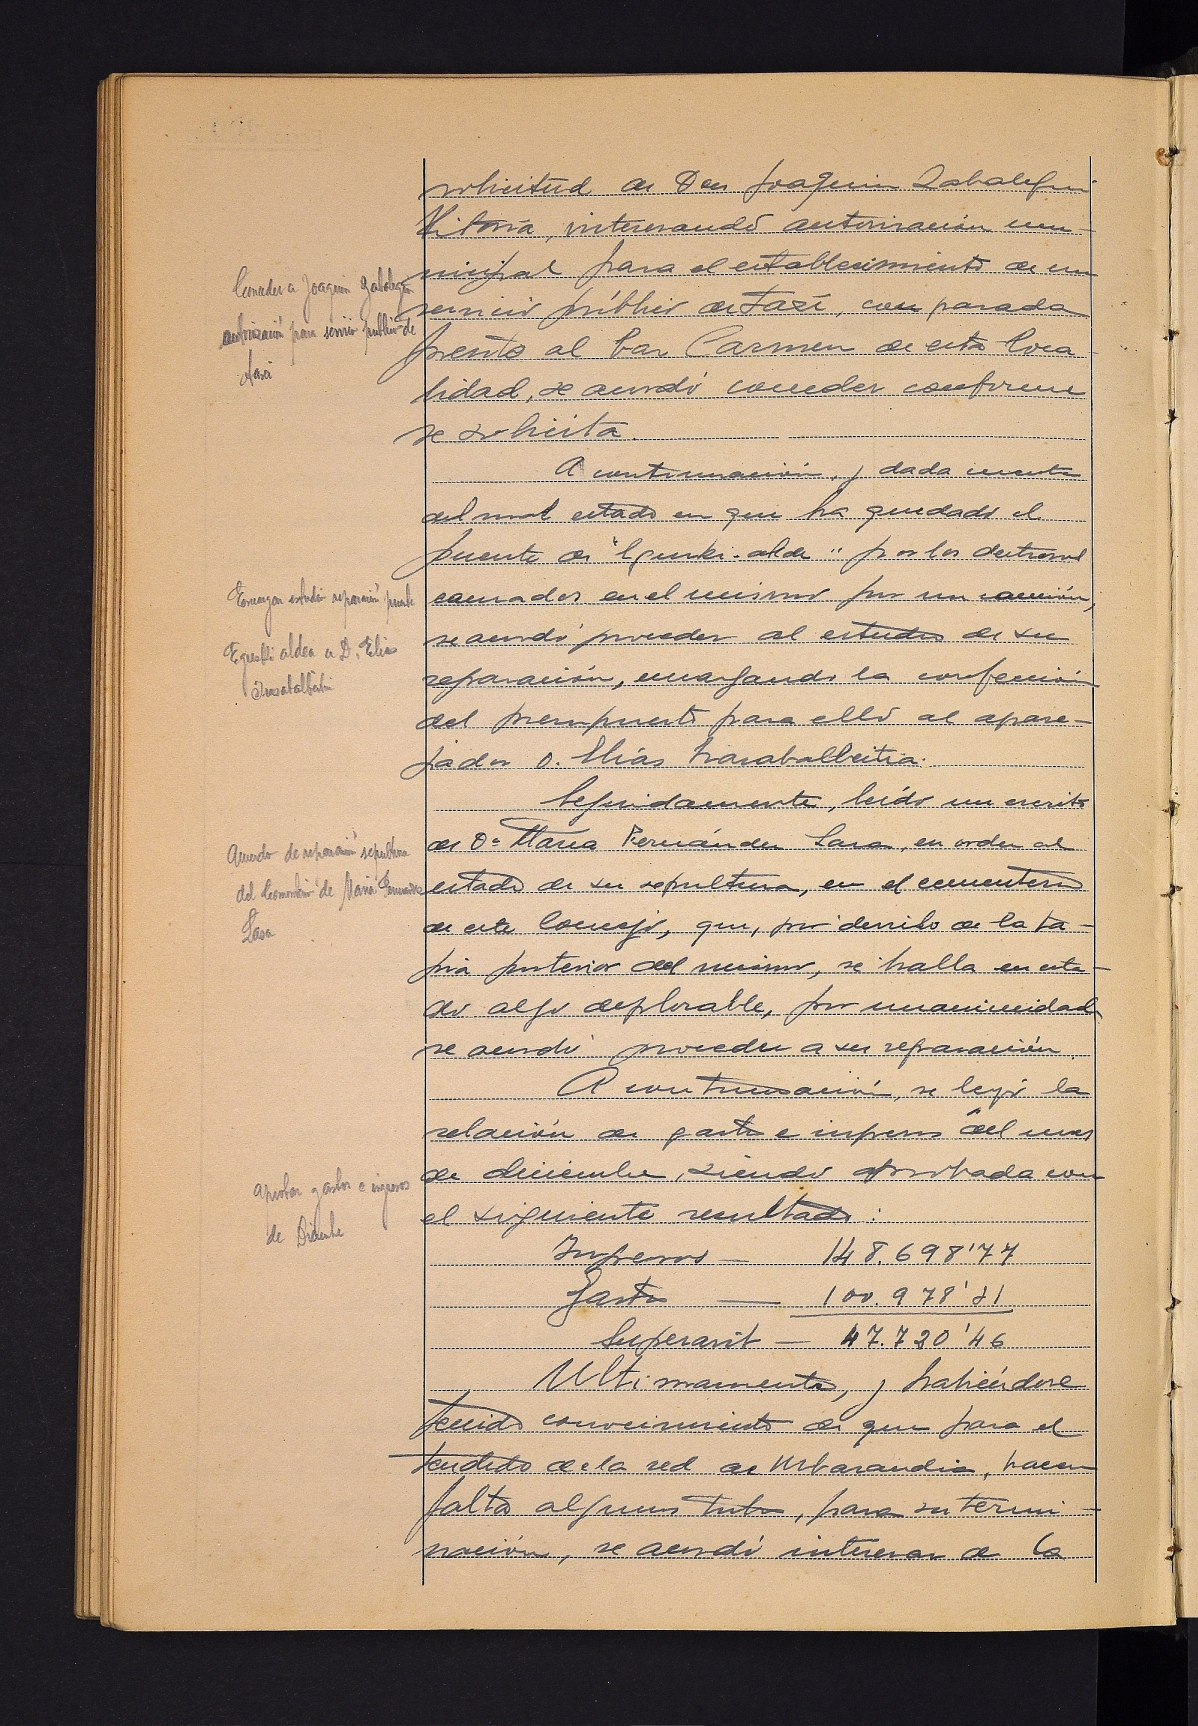 solicitud de Don Joaquin Zabalegui
Vitoria, interesando autorización mu-
nicipal para el establecimiento de un
servicio público de Taxi, con parada
frente al bar Carmen de esta loca-
lidad, se acordó conceder conforme
se solicita.
A continuación, y dada cuenta
del mal estado en que ha quedado el
puente de "Eguzki-aldea" por los destrozos
causados en el mismo por un camión,
se acordó proceder al estudio de su
reparación, encargando la confección
del presupuesto para ello al apare-
jador D. Elías
Seguidamente, leído un escrito
de Dª María Fernández Lasa, en orden al
estado de su sepultura, en el cementerio
de este Concejo, que, por derribo de la ta-
pia posterior del mismo, se halla en esta-
do algo deplorable, por unanimidad
se acordó proceder a su reparación.
A continuación, se leyó la
relación de gastos e ingresos del mes
de diciembre, siendo aprobada con
el siguiente resultado:
Ingresos — 148.698'77
Gastos — 100.978'31
Superavit — 47.720'46
Ultimamente, y habiéndose
tenido conocimiento de que para el
tendido de la red de Urbarandia, hacen
falta algunos tubos, para su termi-
nación, se acordó interesar de la
Conceder a Joaquin Zabalegui
autorización para servicio publico de
taxi
Encargan estudio reparación puente
Eguzki aldea a D. Elias
Acuerdo de reparación sepultura
del Cementerio de Maria Fernandez
Lasa
Aprobar gastos e ingresos
de Diciembre